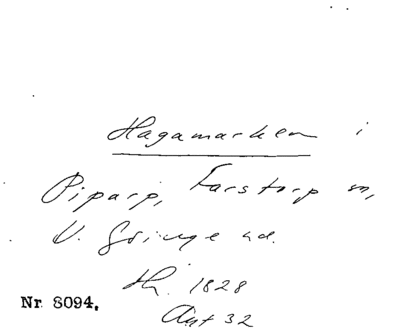 Hagamarken i
Piparp, Farstorp sn,
V. Göinge hd.
Th. 1828
Ant 32
Nr 8094.